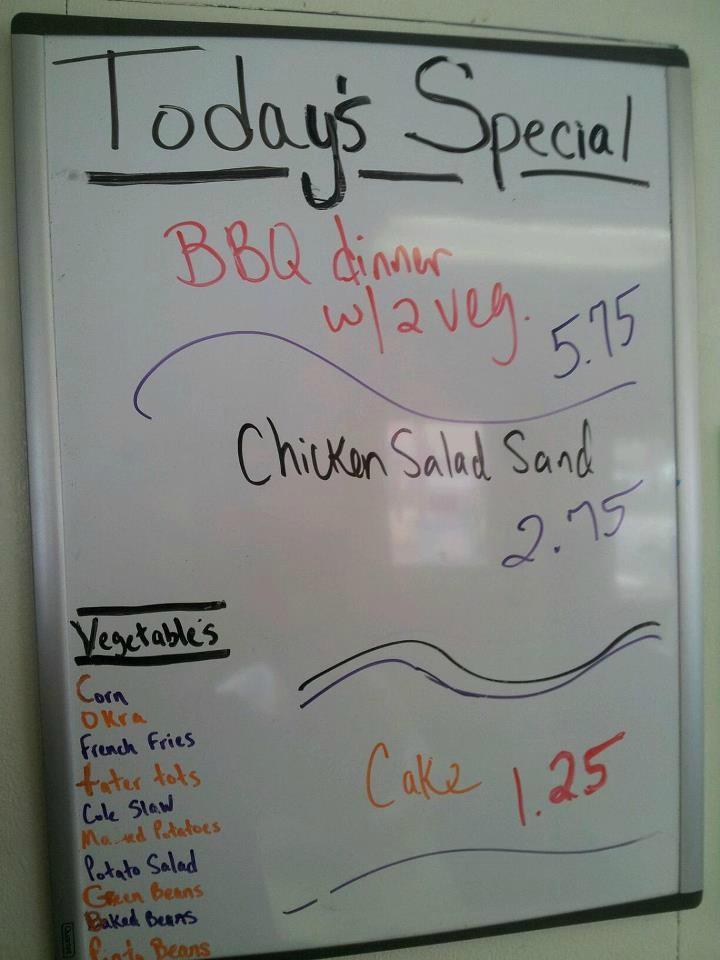 Today's Special
BBQ dinner
w/2 veg.
5.75
Chicken Salad Sand
2.75
Vegetable's
Corn
OKra
French Fries
tater tots
Cole Slaw
Potatoes
Potato Salad
Green Beans
Baked Beans
Pinto Beans
Cake
1.25